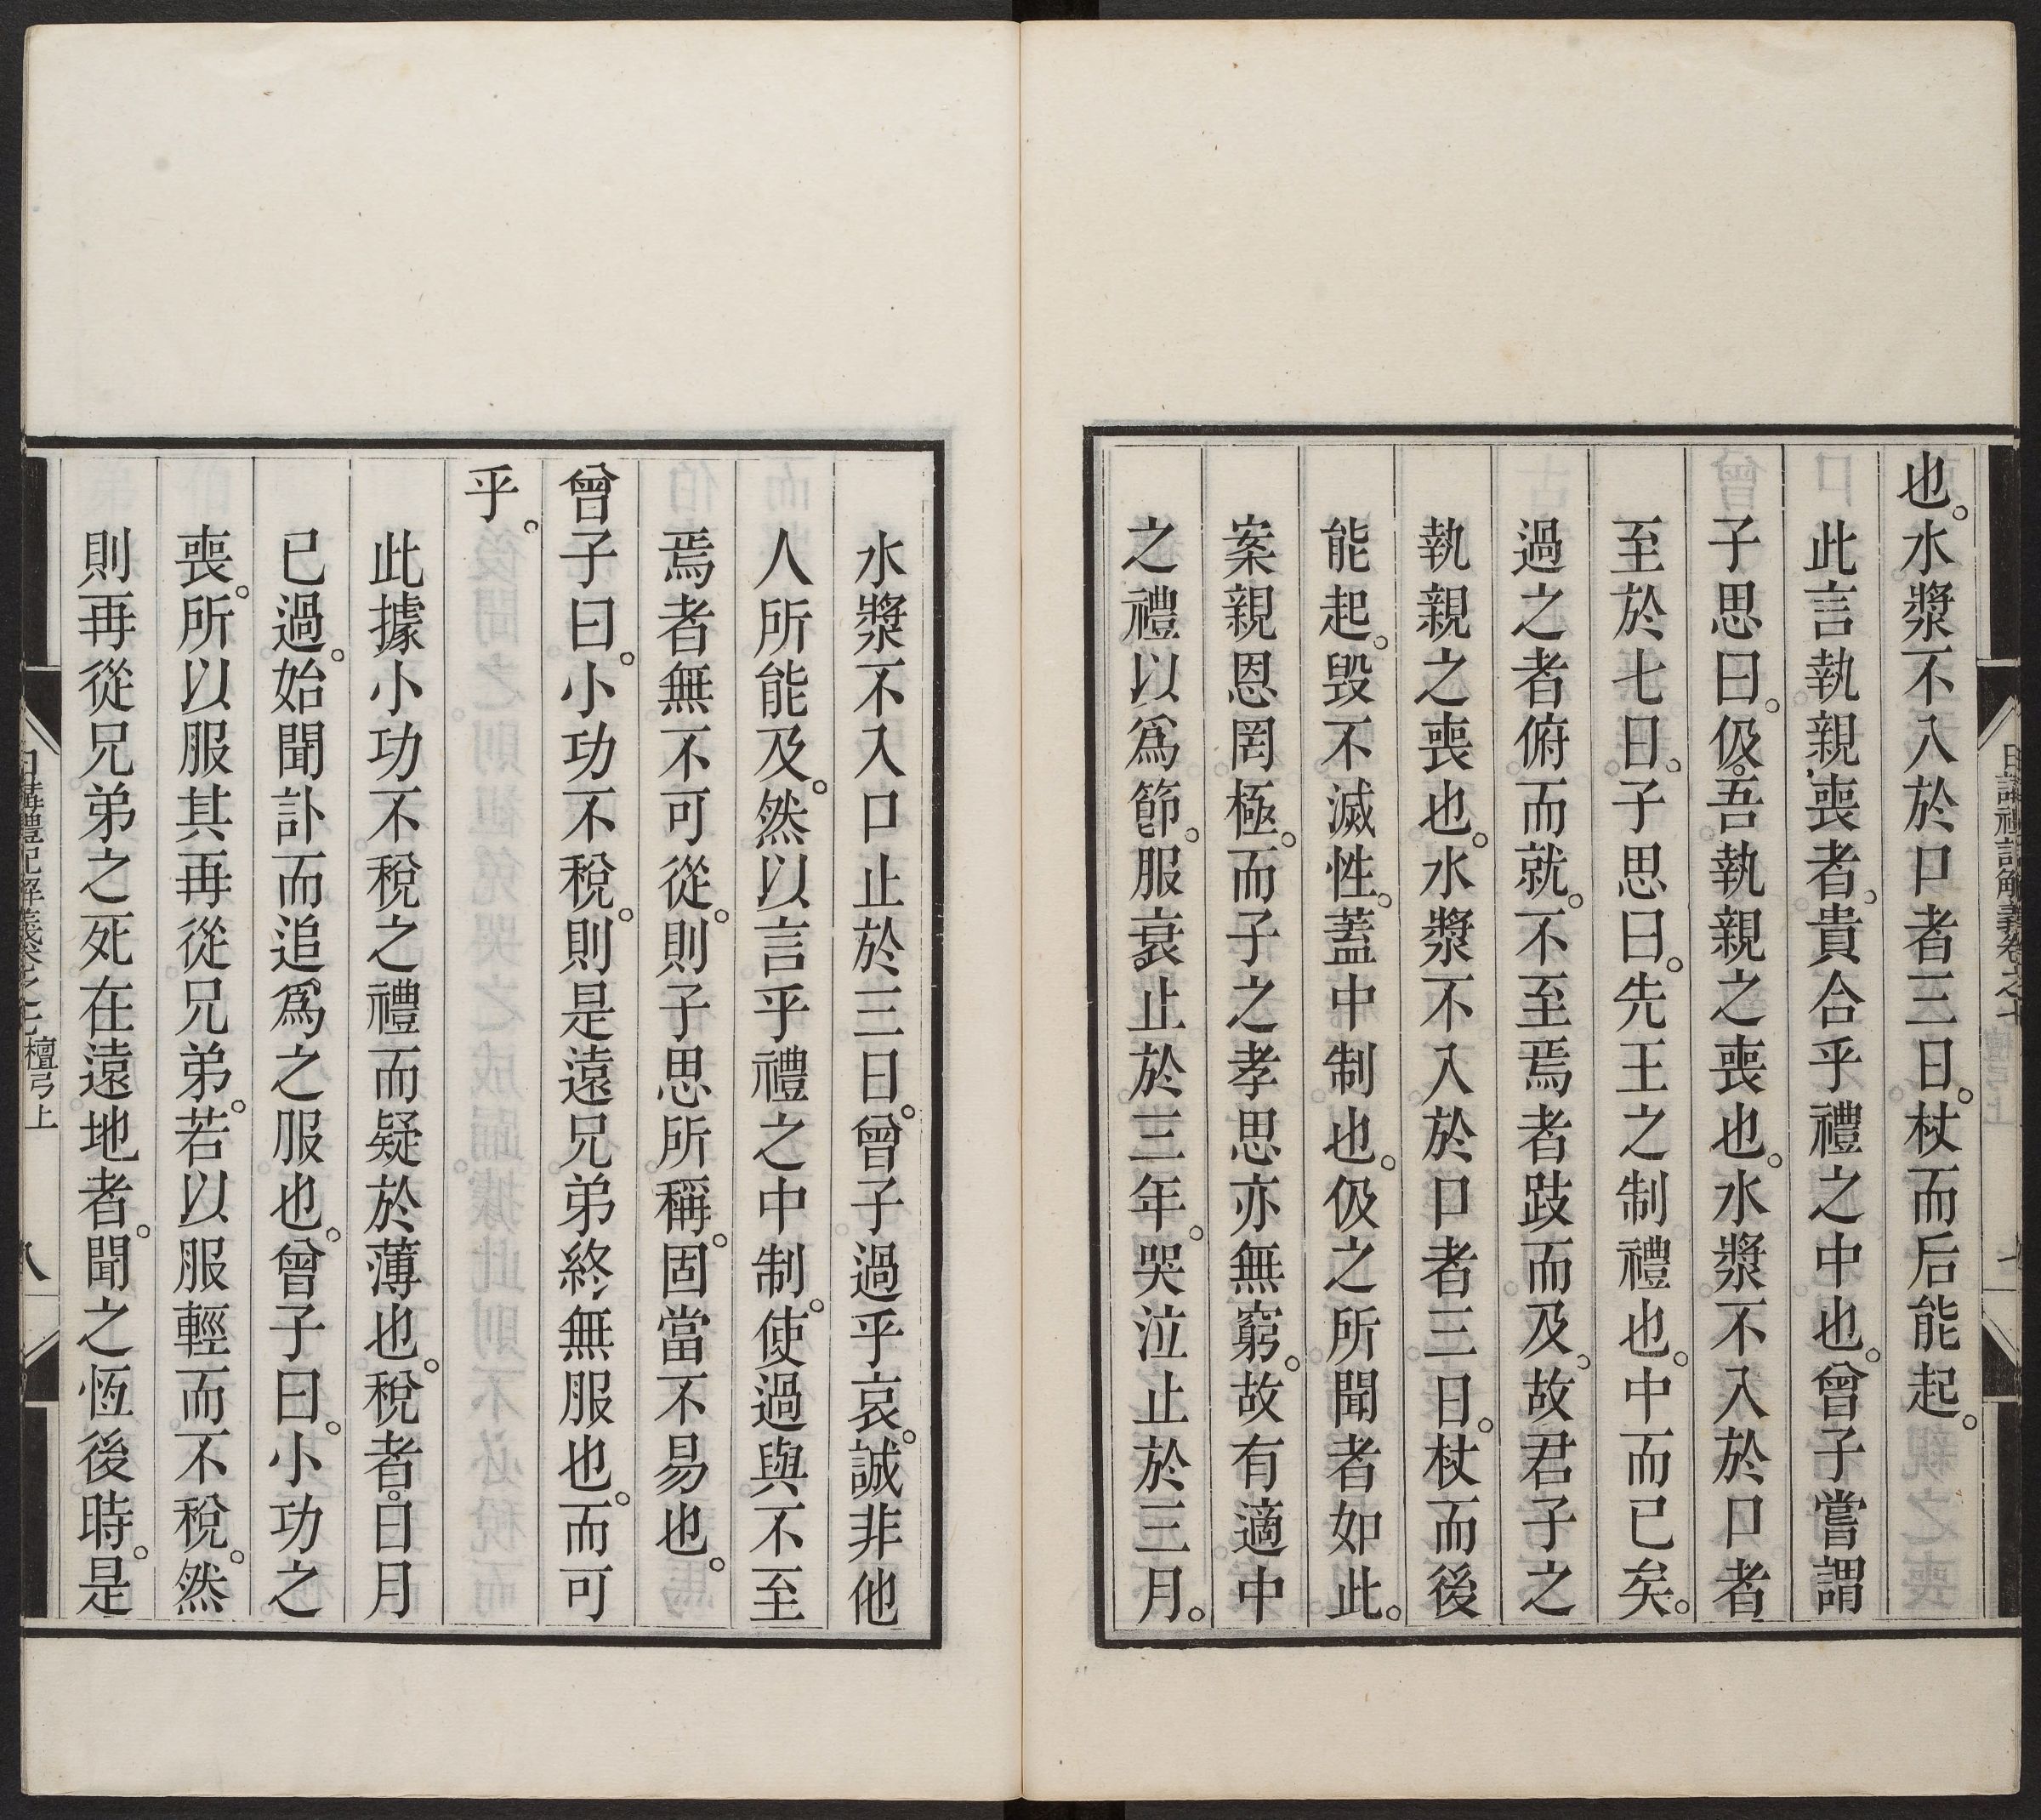 也。水漿不入於口者三日。杖而后能起。
此言執親喪者。貴合乎禮之中也。曾子嘗謂
子思曰。伋。吾執親之喪也。水漿不入於口者
至於七日。子思曰。先王之制禮也。中而已矣。
過之者俯而就。不至焉者跂而及。故君子之
執親之喪也。水漿不入於口者三日。杖而後
能起。毀不滅性。蓋中制也。伋之所聞者如此。
案親恩罔極。而子之孝思亦無窮。故有適中
之禮以爲節。服衰。止於三年。哭泣止於三月。
水漿不入口止於三日。曾子過乎哀。誠非他
人所能及。然以言乎禮之中制。使過與不至
焉者無不可從。則子思所稱。固當不易也。
曾子曰。小功不稅。則是遠兄弟終無服也。而可
乎。
此據小功不稅之禮而疑於薄也。稅者。日月
已過。始聞訃而追爲之服也。曾子曰。小功之
喪。所以服其再從兄弟。若以服輕而不稅。然
則再從兄弟之死在遠地者。聞之恆後時。是
日講禮記解義卷之七 檀弓上 八